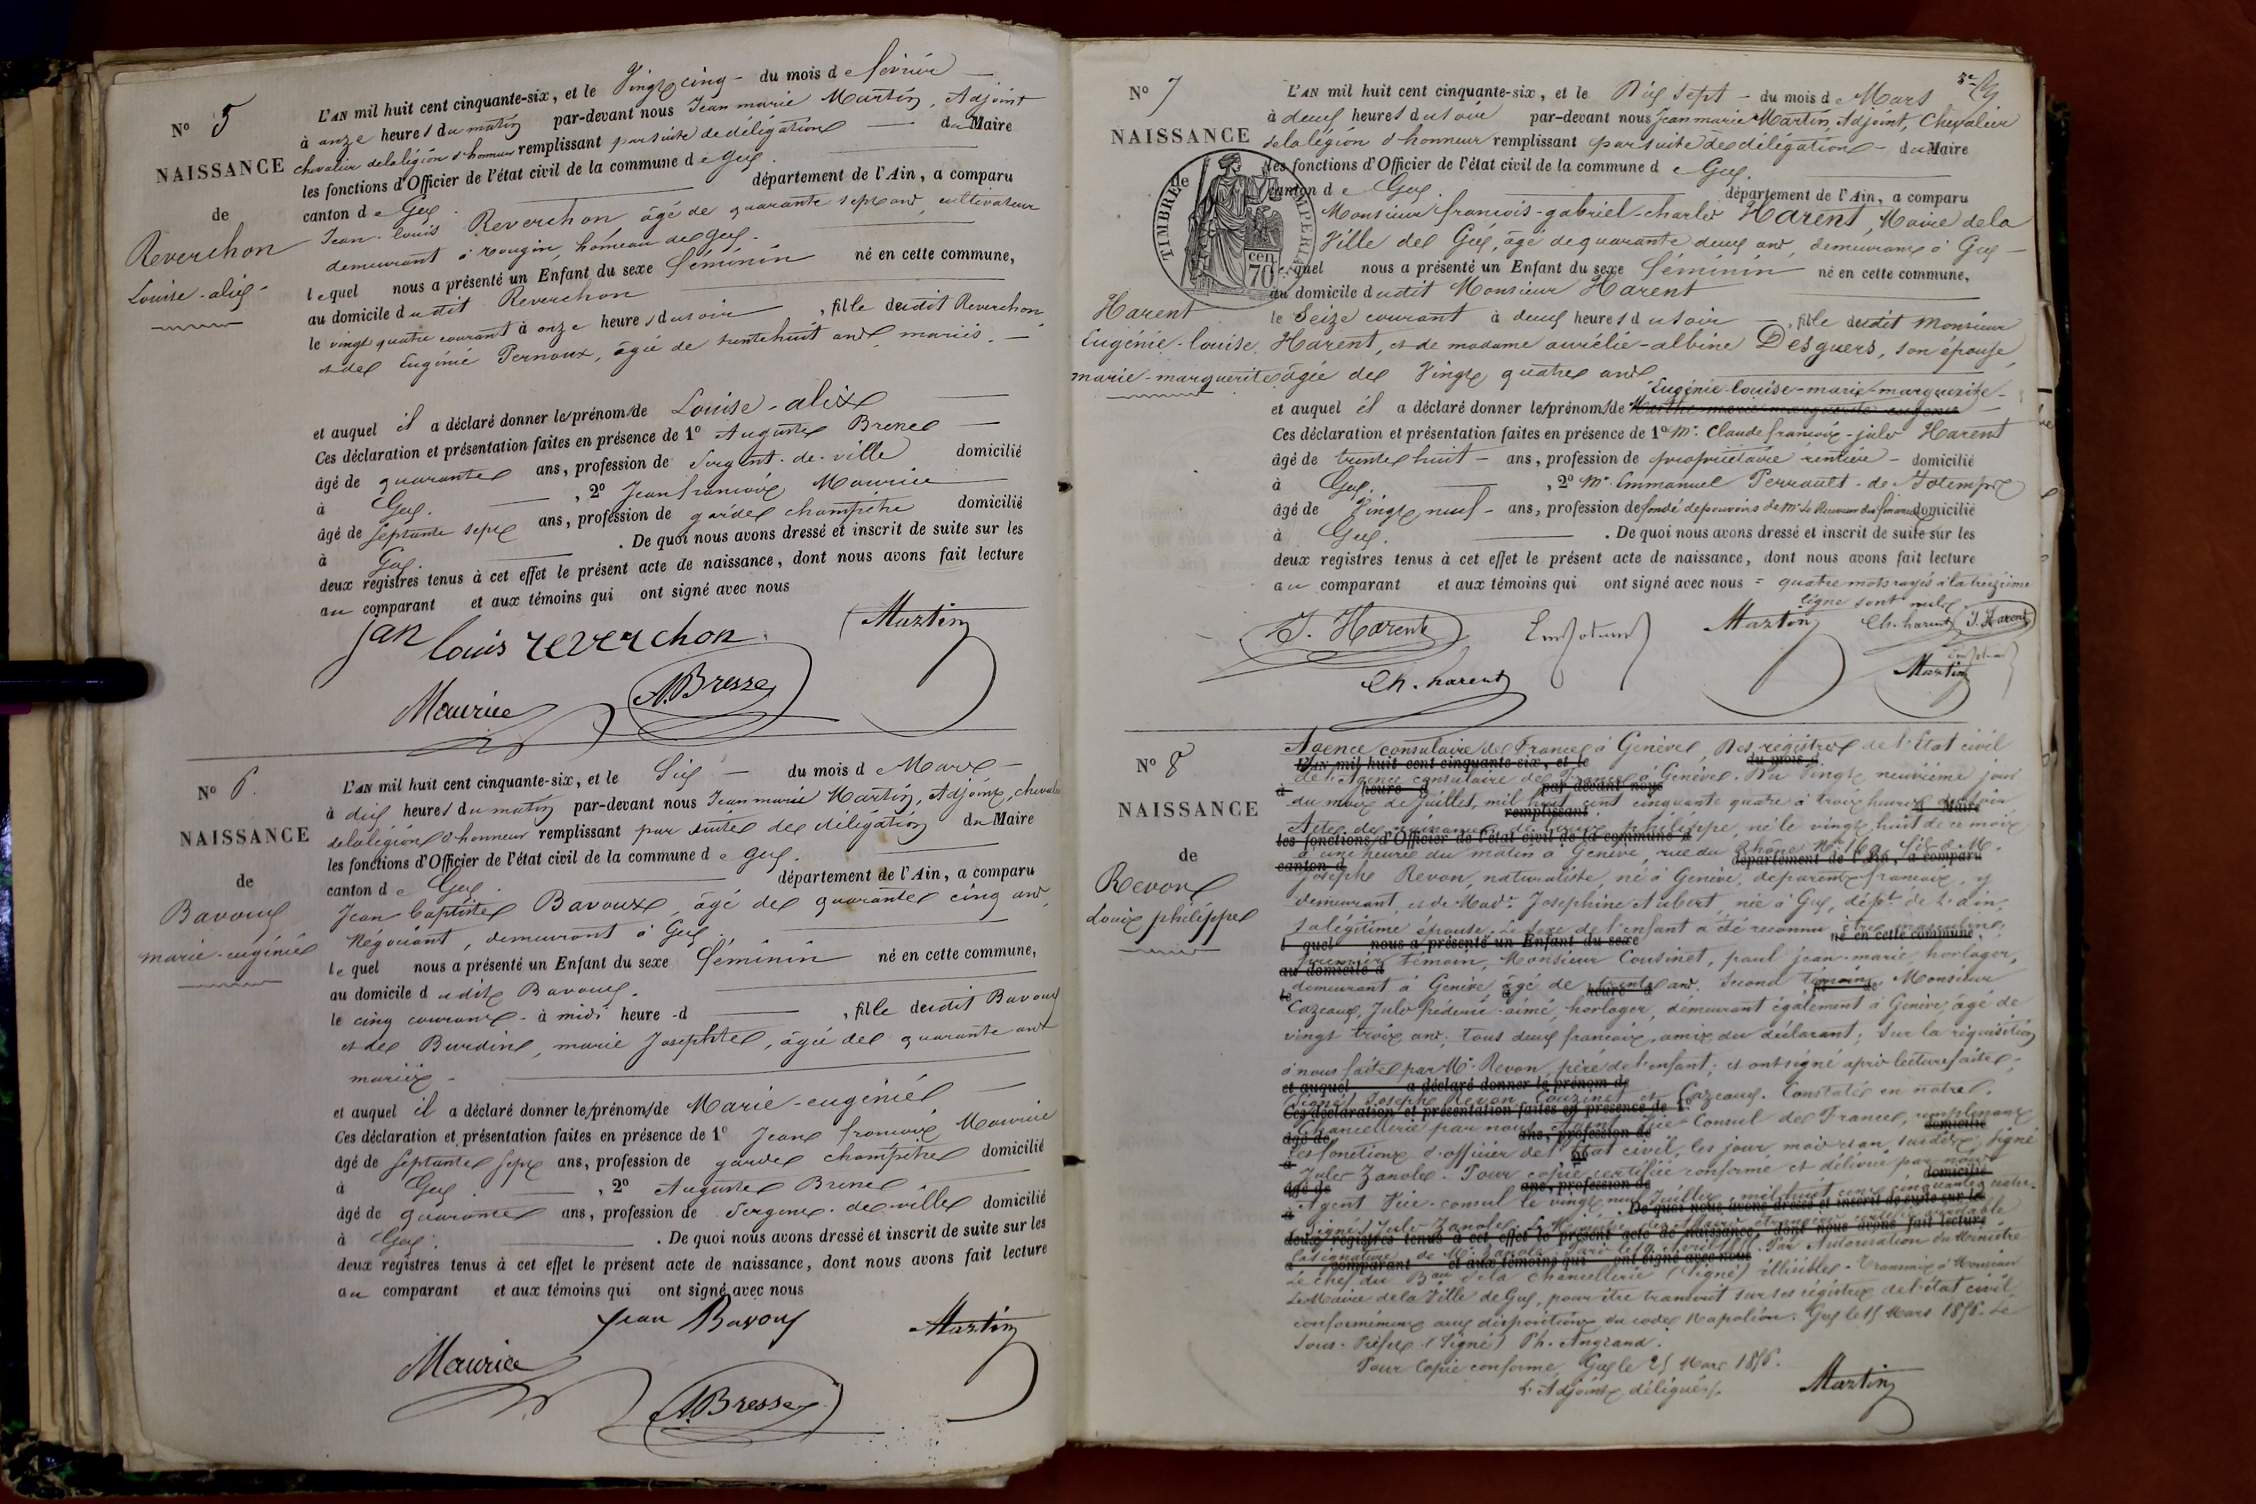 N° 5
NAISSANCE
de
Reverchon
Louise-alix
L'AN mil huit cent cinquante-six, et le Vingt cinq du mois de février
à onze heures du matin par-devant nous Jean marie Martin, Adjoint
chevalier de la légion d'honneur remplissant par suite de délégation du Maire
les fonctions d'Officier de l'état civil de la commune de Gex.
canton de Gex. département de l'Ain, a comparu
Jean-louis Reverchon âgé de quarante sept ans, cultivateur
demeurant à rougin, hameau de Gex.
lequel nous a présenté un Enfant du sexe féminin né en cette commune,
au domicile dudit Reverchon
le vingt quatre courant à onze heures du soir, fille dudit Reverchon
et de Eugénie Pernoux, âgée de trente huit ans, mariés.
et auquel il a déclaré donner le/prénom/de Louise-alix
Ces déclaration et présentation faites en présence de 1° Auguste
âgé de quarante ans, profession de Sergent-de-ville domicilié
à Gex. , 2° Jean françois Maurice
âgé de septante sept ans, profession de garde champêtre domicilié
à Gex. . De quoi nous avons dressé et inscrit de suite sur les
deux registres tenus à cet effet le présent acte de naissance, dont nous avons fait lecture
au comparant et aux témoins qui ont signé avec nous
jan louis reverchon Martin
Maurice A. Bresse
N° 6.
NAISSANCE
de
Bavoux
marie-eugénie
L'AN mil huit cent cinquante-six, et le Six du mois de Mars
à dix heures du matin par-devant nous Jean marie Martin, Adjoint, chevalier
de la légion d'honneur remplissant par suite de délégation du Maire
les fonctions d'Officier de l'état civil de la commune de Gex.
canton de Gex. département de l'Ain, a comparu
Jean Baptiste Bavoux, âgé de quarante cinq ans,
Négociant, demeurant à Gex.
lequel nous a présenté un Enfant du sexe féminin né en cette commune,
au domicile dudit Bavoux.
le cinq courant à midi heure d , fille dudit Bavoux
et de Burdine, marie Josephte, âgée de quarante ans
mariés
et auquel il a déclaré donner le/prénom/de Marie-eugénie
Ces déclaration et présentation faites en présence de 1° Jean françois Maurice
âgé de septante sept ans, profession de garde champêtre domicilié
à Gex. , 2° Auguste
âgé de quarante ans, profession de Sergent-de-ville domicilié
à Gex. . De quoi nous avons dressé et inscrit de suite sur les
deux registres tenus à cet effet le présent acte de naissance, dont nous avons fait lecture
au comparant et aux témoins qui ont signé avec nous
Jean Bavoux Martin
Maurice
A. Bresse
N° 7
NAISSANCE
de
TIMBRE IMPERIAL
70 cen
Harent
Eugénie-louise
marie-marguerite
L'AN mil huit cent cinquante-six, et le Dix sept du mois de Mars
à deux heures du soir par-devant nous Jean marie Martin, Adjoint, Chevalier
de la légion d'honneur remplissant par suite de délégation du Maire
les fonctions d'Officier de l'état civil de la commune de Gex.
canton de Gex. département de l'Ain, a comparu
Monsieur françois-gabriel-charles Harent, Maire de la
Ville de Gex, âgé de quarante deux ans, demeurant à Gex
lequel nous a présenté un Enfant du sexe féminin né en cette commune,
au domicile dudit Monsieur Harent
le Seize courant à deux heures du soir, fille dudit Monsieur
Harent, et de madame aurélie-albine Desguers, son épouse,
âgée de Vingt quatre ans
Eugénie-louise-marie-marguerite
et auquel il a déclaré donner le/prénom/de
Ces déclaration et présentation faites en présence de 1° Mr. Claude françois-jules Harent
âgé de trente huit ans, profession de propriétaire rentier domicilié
à Gex. , 2° Mr. Emmanuel Perrault-de
âgé de Vingt neuf ans, profession de fondé de pouvoirs de Mr. le Receveur des finances domicilié
à Gex. . De quoi nous avons dressé et inscrit de suite sur les
deux registres tenus à cet effet le présent acte de naissance, dont nous avons fait lecture
au comparant et aux témoins qui ont signé avec nous = quatre mots rayés à la treizième
ligne sont nuls
J. Harent Martin Ch. harent J. Harent
Ch. harent Martin
N° 8
NAISSANCE
de
Revon
Louis philippe
Agence consulaire de France à Genève, Des registres de l'Etat civil
L'AN mil huit cent cinquante-six, et le du mois d
de l'Agence consulaire de France à Genève. Du Vingt neuvième jour
à heure d par devant nous
du mois de Juillet, mil huit cent cinquante quatre à trois heures du soir
remplissant d Maire
Acte de naissance de Louis philippe, né le vingt huit de ce mois
les fonctions d'Officier de l'état civil de la commune d
à une heure du matin à Genève, rue du Rhône fils de M.
canton d département de l'Ain, a comparu
Joseph Revon, naturaliste, né à Genève, de parents français, y
demeurant, et de Made. Josephine Aubert, née à Gex, dépt. de l'ain,
sa légitime épouse. Le sexe de l'enfant a été reconnu être masculin.
l quel nous a présenté un Enfant du sexe né en cette commune,
premier témoin, Monsieur Cousinet, paul jean-marie, horloger,
au domicile d
demeurant à Genève âgé de trente ans. Second témoin, Monsieur
le à heure d
Cazeaux, Jules frédéric-aimé, horloger, demeurant également à Genève, âgé de
vingt trois ans; tous deux français, amis du déclarant; Sur la réquisition
à nous faite par Mr. Revon, père de l'enfant; et ont signé après lecture faite.
et auquel a déclaré donner le prénom de
Signé) Joseph Revon, Couzinet et Cazeaux. Constaté en notre
Ces déclaration et présentation faites en présence de 1°
Chancellerie par nous Agent Vice-Consul de France, remplissant
âgé de ans, profession de domicilié
les fonctions d'officier de l'état civil, les jour, mois et an susdits, signé
Jules Zanole. Pour copie certifiée conforme et délivrée par nous
âgé de ans, profession de domicilié
Agent Vice-consul le vingt neuf Juillet mil huit cent cinquante quatre.
à . De quoi nous avons dressé et inscrit de suite sur les
Signé) Jules Zanole.
deux registres tenus à cet effet le présent acte de naissance, dont nous avons fait lecture
la signature de Mr. Zanole. Par Autorisation du Ministre
a comparant et aux témoins qui ont signé avec nous
Le Chef du Bau. de la Chancellerie (Signé) illisible. Transmis à Monsieur
Le Maire de la Ville de Gex, pour être transcrit sur ses registres de l'état civil
conformément aux dispositions du code Napoléon. Gex le 15 Mars 1856. Le
Sous-Préfet (Signé) Ph. Angrand.
Pour Copie conforme, Gex le 25 Mars 1856.
L'Adjoint délégué, Martin